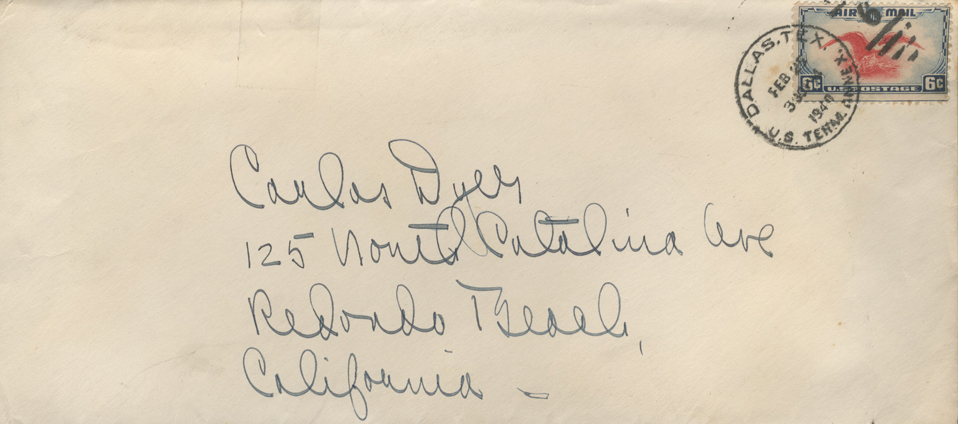 AIR MAIL
DALLAS, TEX.
FEB
1940
U.S. TERM. ANNEX.
6c U.S. POSTAGE 6c
Carlos Dyer
125 North Catalina Ave
Redondo Beach,
California -